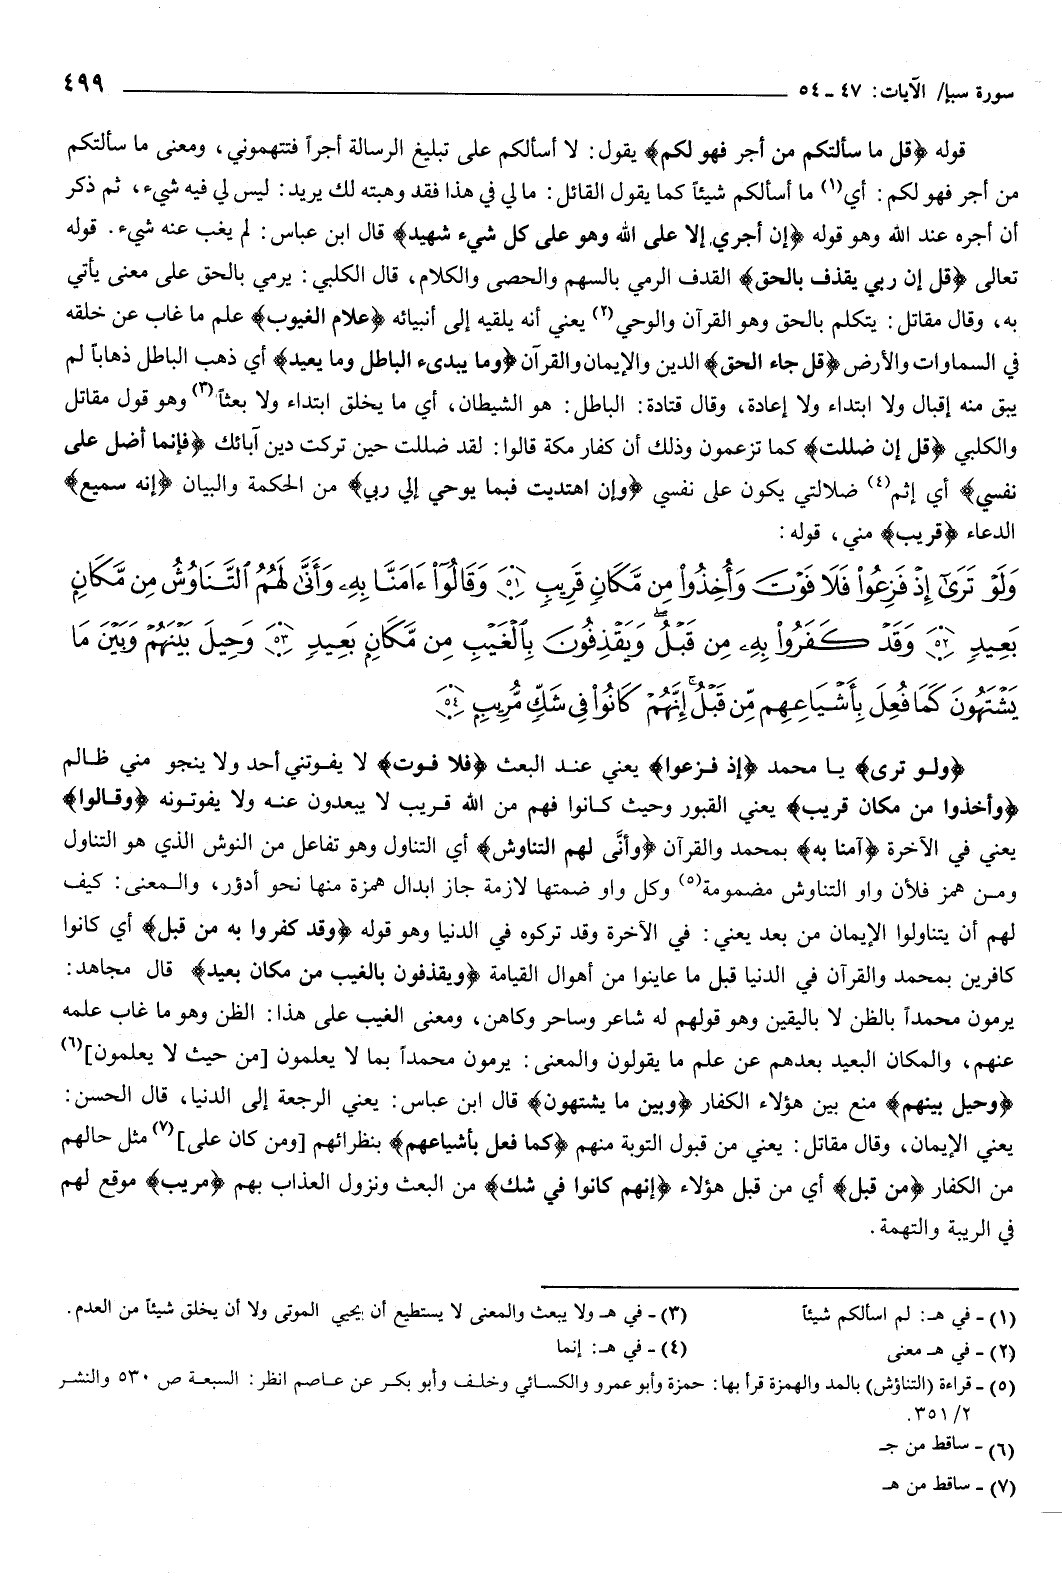 سورة سبإ/ الآيات: ٤٧ ـ ٥٤
٤٩٩
قوله ﴿قل ما سألتكم من أجر فهو لكم﴾ يقول: لا أسألكم على تبليغ الرسالة أجراً فتتهموني، ومعنى ما سألتكم
من أجر فهو لكم: أي(١) ما أسألكم شيئاً كما يقول القائل: ما لي في هذا فقد وهبته لك يريد: ليس لي فيه شيء، ثم ذكر
أن أجره عند الله وهو قوله ﴿إن أجري إلا على الله وهو على كل شيء شهيد﴾ قال ابن عباس: لم يغب عنه شيء. قوله
تعالى ﴿قل إن ربي يقذف بالحق﴾ القدف الرمي بالسهم والحصى والكلام، قال الكلبي: يرمي بالحق على معنى يأتي
به، وقال مقاتل: يتكلم بالحق وهو القرآن والوحي(٢) يعني أنه يلقيه إلى أنبيائه ﴿علام الغيوب﴾ علم ما غاب عن خلقه
في السماوات والأرض ﴿قل جاء الحق﴾ الدين والإيمان والقرآن ﴿وما يبدىء الباطل وما يعيد﴾ أي ذهب الباطل ذهاباً لم
يبق منه إقبال ولا ابتداء ولا إعادة، وقال قتادة: الباطل: هو الشيطان، أي ما يخلق ابتداء ولا بعثاً(٣) وهو قول مقاتل
والكلبي ﴿قل إن ضللت﴾ كما تزعمون وذلك أن كفار مكة قالوا: لقد ضللت حين تركت دين آبائك ﴿فإنما أضل على
نفسي﴾ أي إثم(٤) ضلالتي يكون على نفسي ﴿وإن اهتديت فبما يوحي إلي ربي﴾ من الحكمة والبيان ﴿إنه سميع﴾
الدعاء ﴿قريب﴾ مني، قوله:
وَلَوْ تَرَىٰٓ إِذْ فَزِعُوا۟ فَلَا فَوْتَ وَأُخِذُوا۟ مِن مَّكَانٍ قَرِيبٍ ٥١ وَقَالُوٓا۟ ءَامَنَّا بِهِۦ وَأَنَّىٰ لَهُمُ ٱلتَّنَاوُشُ مِن مَّكَانٍۭ
بَعِيدٍ ٥٢ وَقَدْ كَفَرُوا۟ بِهِۦ مِن قَبْلُ ۖ وَيَقْذِفُونَ بِٱلْغَيْبِ مِن مَّكَانٍۭ بَعِيدٍ ٥٣ وَحِيلَ بَيْنَهُمْ وَبَيْنَ مَا
يَشْتَهُونَ كَمَا فُعِلَ بِأَشْيَاعِهِم مِّن قَبْلُ ۚ إِنَّهُمْ كَانُوا۟ فِى شَكٍّ مُّرِيبٍۭ ٥٤
﴿ولو ترى﴾ يا محمد ﴿إذ فزعوا﴾ يعني عند البعث ﴿فلا فوت﴾ لا يفوتني أحد ولا ينجو مني ظالم
﴿وأخذوا من مكان قريب﴾ يعني القبور وحيث كانوا فهم من الله قريب لا يبعدون عنه ولا يفوتونه ﴿وقالوا﴾
يعني في الآخرة ﴿آمنا به﴾ بمحمد والقرآن ﴿وأنَّى لهم التناوش﴾ أي التناول وهو تفاعل من النوش الذي هو التناول
ومن همز فلأن واو التناوش مضمومة(٥) وكل واو ضمتها لازمة جاز ابدال همزة منها نحو أدؤر، والمعنى: كيف
لهم أن يتناولوا الإيمان من بعد يعني: في الآخرة وقد تركوه في الدنيا وهو قوله ﴿وقد كفروا به من قبل﴾ أي كانوا
كافرين بمحمد والقرآن في الدنيا قبل ما عاينوا من أهوال القيامة ﴿ويقذفون بالغيب من مكان بعيد﴾ قال مجاهد:
يرمون محمداً بالظن لا باليقين وهو قولهم له شاعر وساحر وكاهن، ومعنى الغيب على هذا: الظن وهو ما غاب علمه
عنهم، والمكان البعيد بعدهم عن علم ما يقولون والمعنى: يرمون محمداً بما لا يعلمون [من حيث لا يعلمون](٦)
﴿وحيل بينهم﴾ منع بين هؤلاء الكفار ﴿وبين ما يشتهون﴾ قال ابن عباس: يعني الرجعة إلى الدنيا، قال الحسن:
يعني الإيمان، وقال مقاتل: يعني من قبول التوبة منهم ﴿كما فعل بأشياعهم﴾ بنظرائهم [ومن كان على](٧) مثل حالهم
من الكفار ﴿من قبل﴾ أي من قبل هؤلاء ﴿إنهم كانوا في شك﴾ من البعث ونزول العذاب بهم ﴿مريب﴾ موقع لهم
في الريبة والتهمة.
(١) ـ في هـ: لم اسألكم شيئاً
(٣) ـ في هـ ولا يبعث والمعنى لا يستطيع أن يحيي الموتى ولا أن يخلق شيئاً من العدم.
(٢) ـ في هـ معنى
(٤) ـ في هـ: إنما
(٥) ـ قراءة (التناؤش) بالمد والهمزة قرأ بها: حمزة وأبو عمرو والكسائي وخلف وأبو بكر عن عاصم انظر: السبعة ص ٥٣٠ والنشر
٢/ ٣٥١.
(٦) ـ ساقط من جـ
(٧) ـ ساقط من هـ